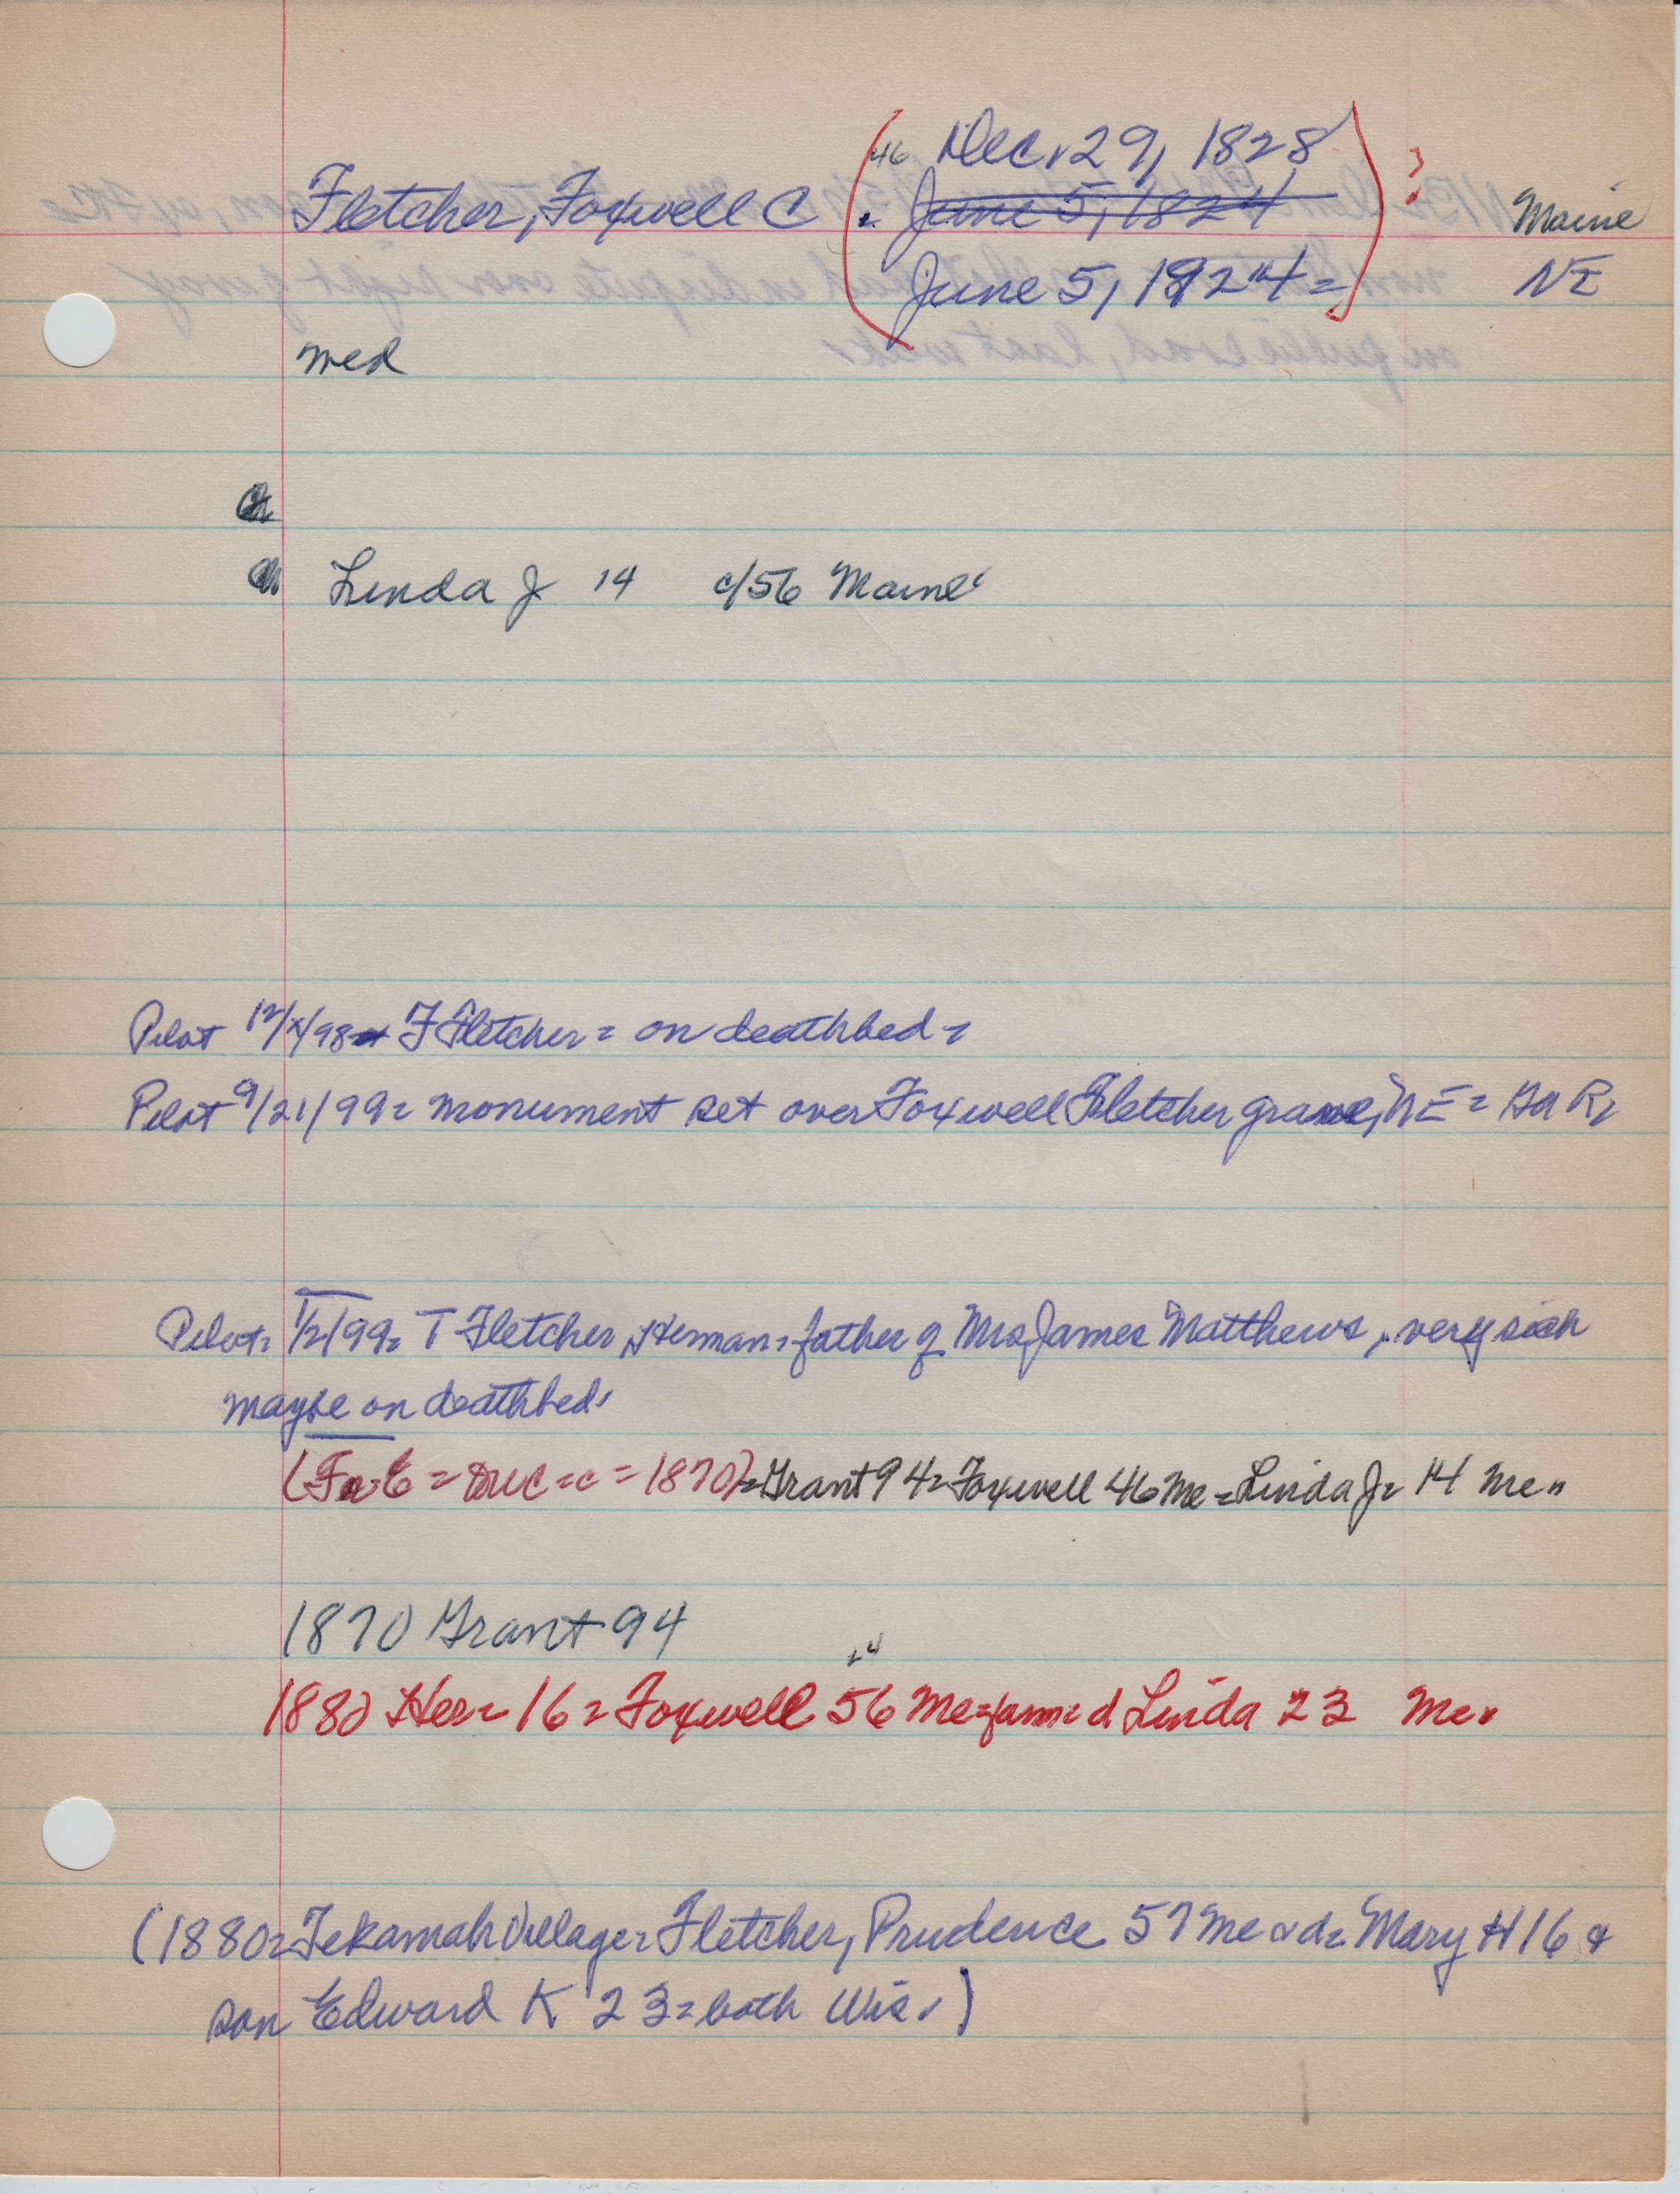 46 Dec. 29, 1828
Fletcher, Foxwell C . June 5, 1824 ? Maine
June 5, 1924 = NE
med
Ch
Ch Linda J 14 c/56 Maine
Pilot 12/ /98 F Fletcher = on deathbed =
Pilot 9/21/99 = monument set over Foxwell Fletcher grave, NE =
Pilot = 1/2/99 = T Fletcher, Herman = father of Mrs James Matthews, very sick
maybe on deathbed.
= c = 1870) = Grant 94 = Foxwell 46 Me = Linda J = 14 Me =
1870 Grant 94
24
1880 Her = 16 = Foxwell 56 Me = farm = d Linda 23 Me.
(1880 = Tekamah Village = Fletcher, Prudence 57 Me & d = Mary H 16 &
son Edward K 23 = both Wis.)